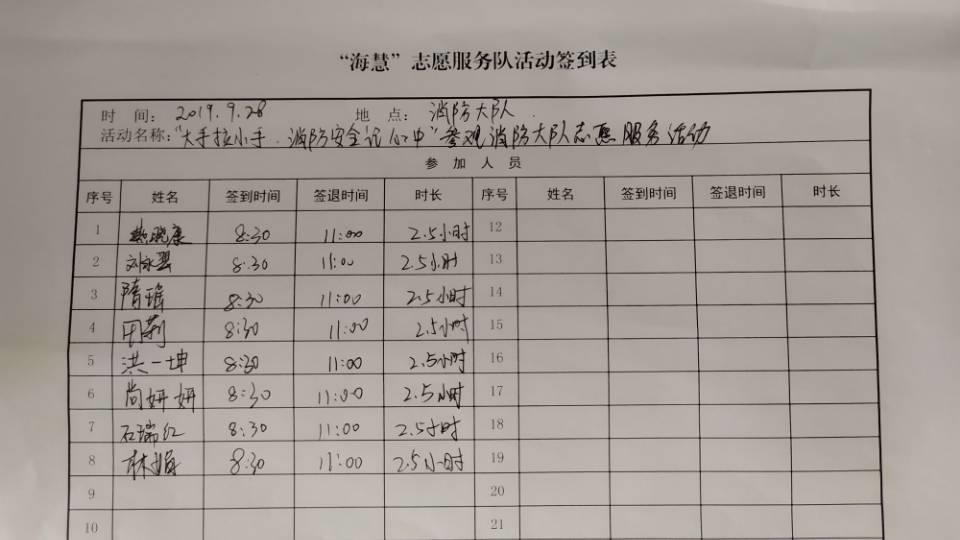 “海慧”志愿服务队活动签到表
时 间: 2019.9.28 地 点: 消防大队
活动名称:“大手拉小手.消防安全记心中”参观消防大队志愿服务活动
参 加 人 员
序号 姓名 签到时间 签退时间 时长 序号 姓名 签到时间 签退时间 时长
1 8:30 11:00 2.5小时 12
2 8:30 11:00 2.5小时 13
3 隋瑶 8:30 11:00 2.5小时 14
4 田莉 8:30 11:00 2.5小时 15
5 洪一坤 8:30 11:00 2.5小时 16
6 尚妍妍 8:30 11:00 2.5小时 17
7 石瑞红 8:30 11:00 2.5小时 18
8 林娟 8:30 11:00 2.5小时 19
9 20
10 21